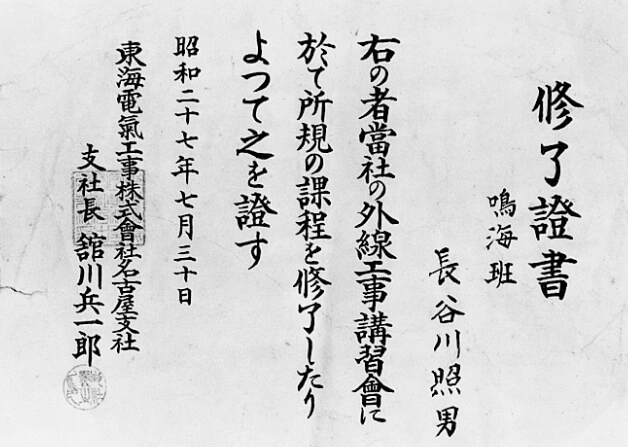 修了證書
鳴海班
長谷川照男
右の者當社の外線工事講習會に
於て所規の課程を修了したり
よつて之を證す
昭和二十七年七月三十日
東海電氣工事株式會社名古屋支社
支社長 舘川兵一郎